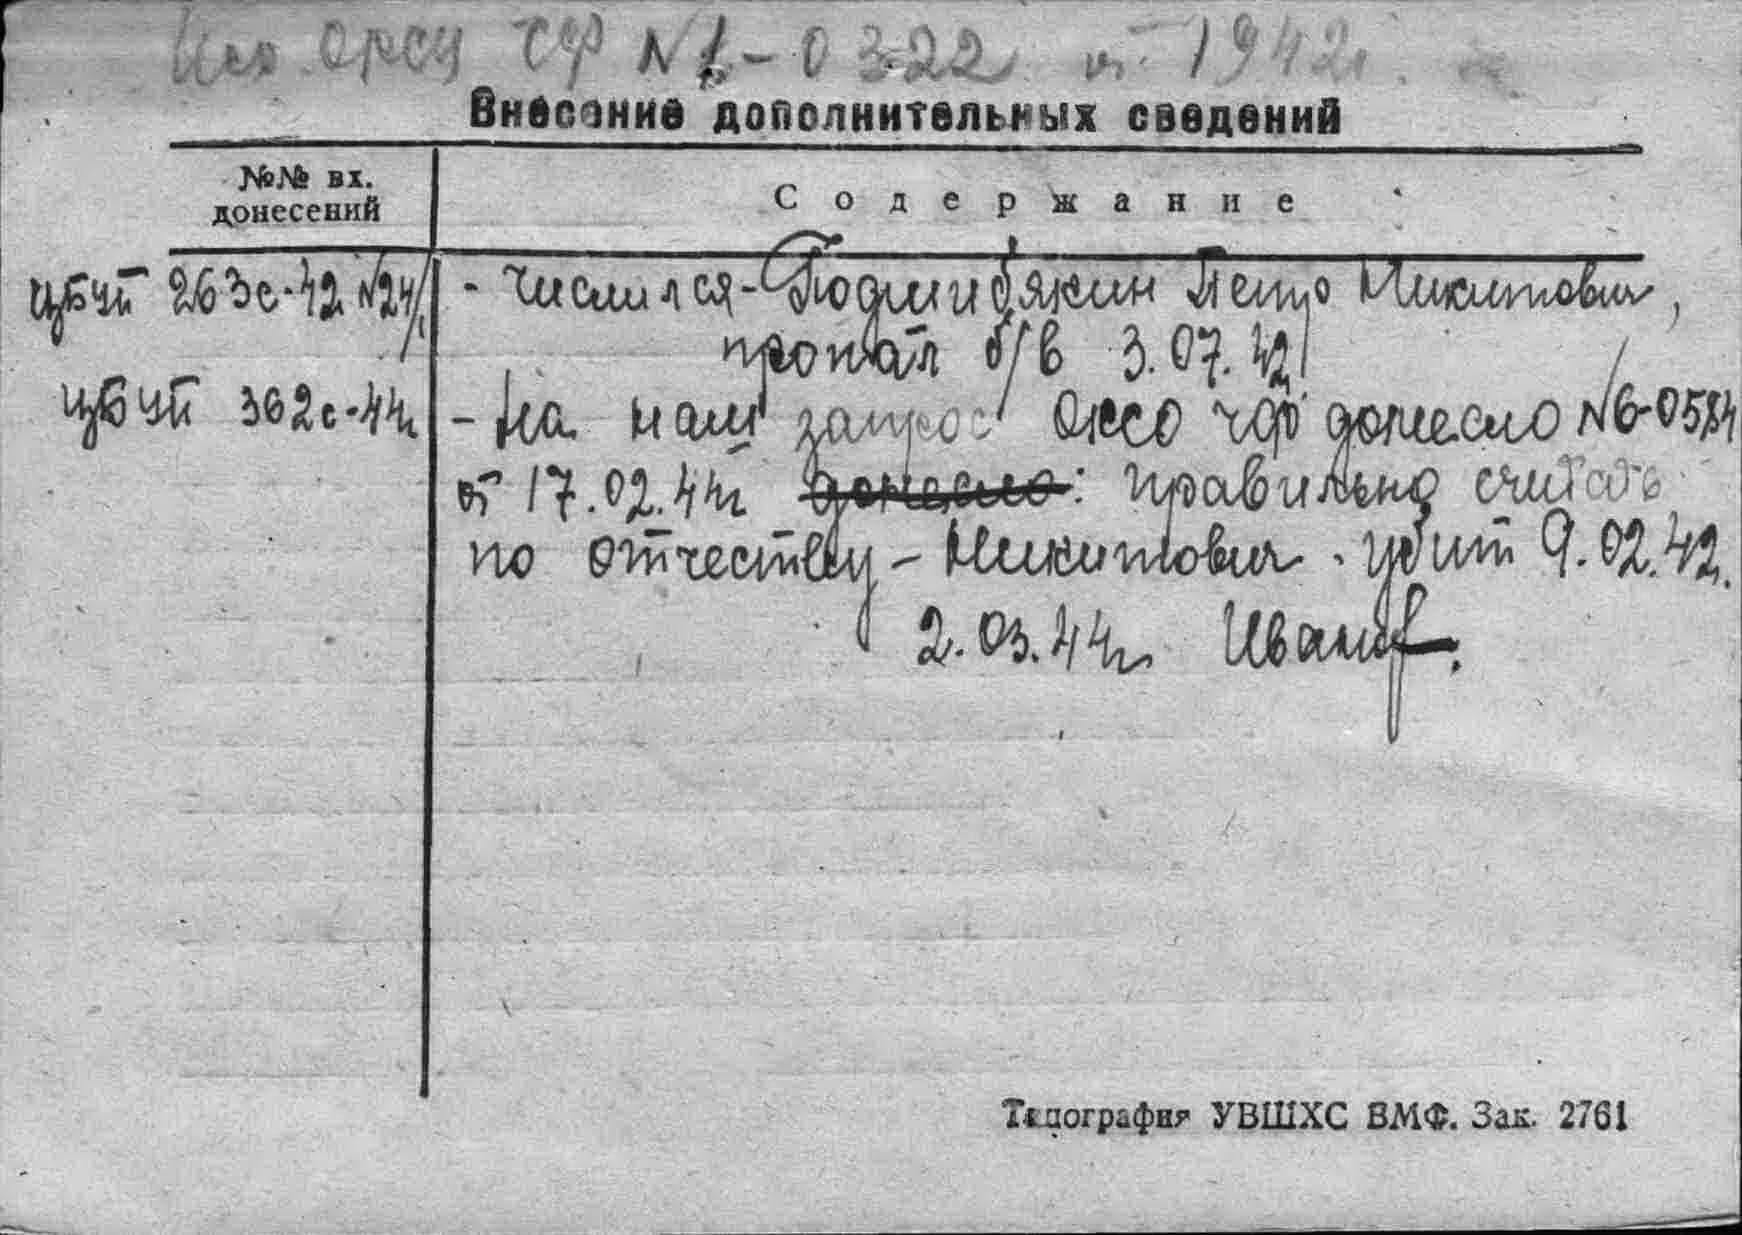 Исх ОРСУ ЧФ № 1-0322 от 1942г.
Внесение дополнительных сведений
№№ вх.
донесений
Содержание
ЦБУП 263с-42 №24/1 - Числился - Петр Никитович,
пропал б/в 3.07.42
ЦБУП 362с-44г - На наш запрос ЧФ донесло №6-0584
от 17.02.44г донесло: правильно считать
по отчеству - Никитович. убит 9.02.42.
2.03.44г Иванов.
Типография УВШХС ВМФ. Зак. 2761